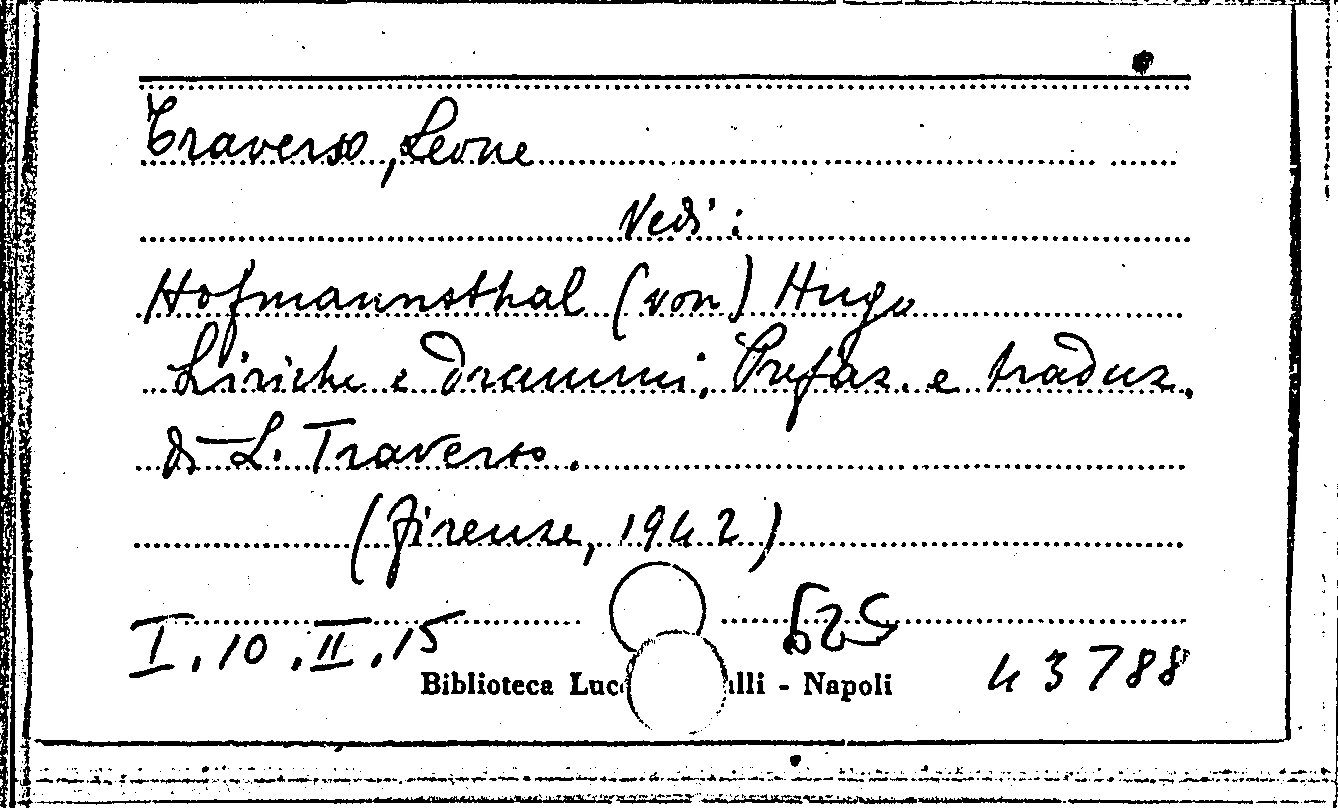 Traverso, Leone
Vedi:
Hofmannsthal (von) Hugo
Liriche e drammi. Prefaz. e traduz.
di L. Traverso.
(Firenze, 1942)
I.10.II.15
625
43788
Biblioteca Luc lli - Napoli